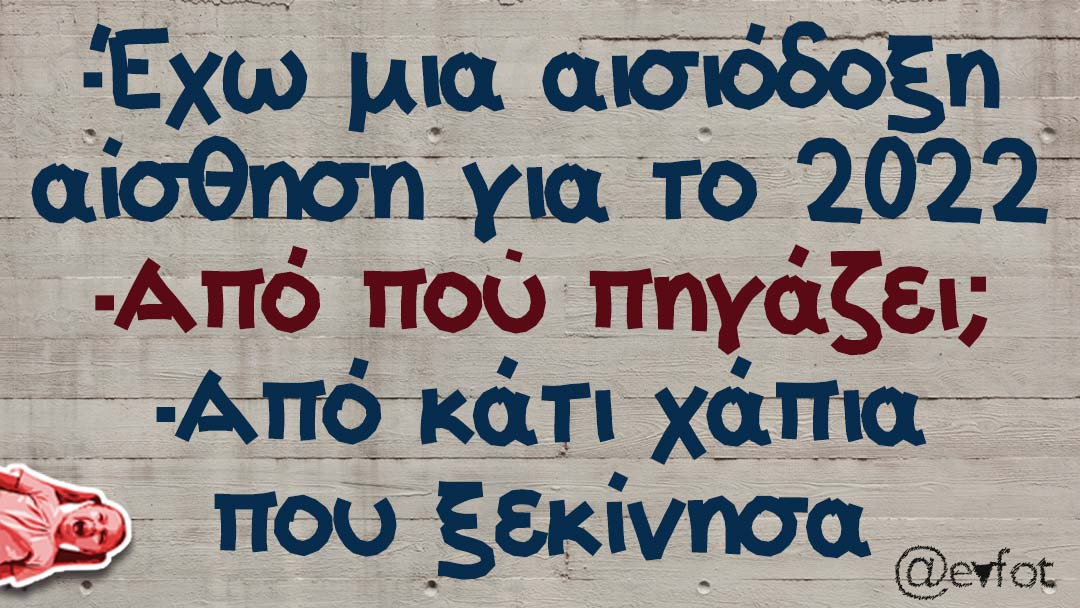 -Έχω μια αισιόδοξη
αίσθηση για το 2022
-Από πού πηγάζει;
-Από κάτι χάπια
που ξεκίνησα
@evfot